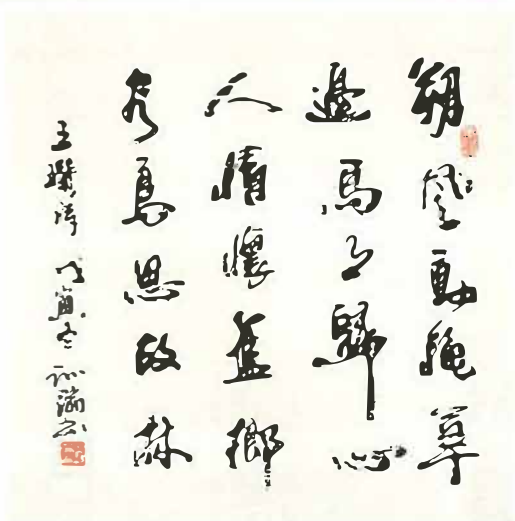 朔風動穐草
邊馬有歸心
人情懷舊鄉
客鳥思故林
王瓚詩 戊寅冬 書